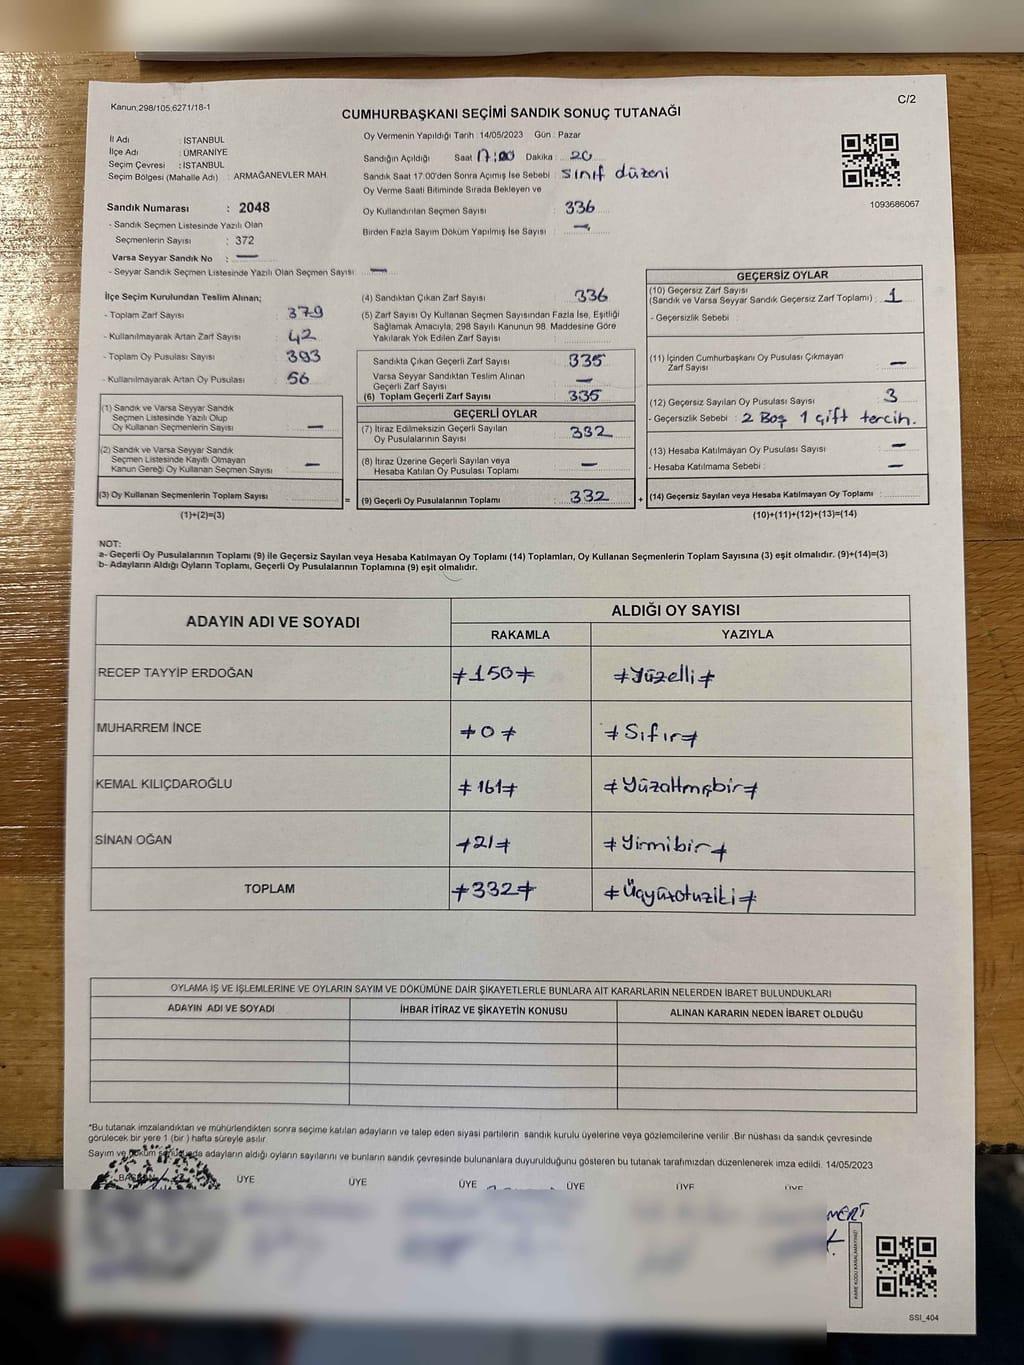 Kanun;298/105,6271/18-1
C/2
CUMHURBAŞKANI SEÇİMİ SANDIK SONUÇ TUTANAĞI
İl Adı : İSTANBUL
İlçe Adı : ÜMRANİYE
Seçim Çevresi : İSTANBUL
Seçim Bölgesi (Mahalle Adı) : ARMAĞANEVLER MAH.
Oy Vermenin Yapıldığı Tarih : 14/05/2023 Gün : Pazar
Sandığın Açıldığı Saat 17:00 Dakika : 20
Sandık Saat 17:00'den Sonra Açımış İse Sebebi : sınıf düzeni
Oy Verme Saati Bitiminde Sırada Bekleyen ve
Oy Kullandırılan Seçmen Sayısı : 336
Birden Fazla Sayım Döküm Yapılmış İse Sayısı : —
1093686067
Sandık Numarası : 2048
- Sandık Seçmen Listesinde Yazılı Olan
Seçmenlerin Sayısı : 372
Varsa Seyyar Sandık No : —
- Seyyar Sandık Seçmen Listesinde Yazılı Olan Seçmen Sayısı: —
İlçe Seçim Kurulundan Teslim Alınan;
- Toplam Zarf Sayısı : 379
- Kullanılmayarak Artan Zarf Sayısı : 42
- Toplam Oy Pusulası Sayısı : 393
- Kullanılmayarak Artan Oy Pusulası : 56
(1) Sandık ve Varsa Seyyar Sandık
Seçmen Listesinde Yazılı Olup
Oy Kullanan Seçmenlerin Sayısı : —
(2) Sandık ve Varsa Seyyar Sandık
Seçmen Listesinde Kayıtlı Olmayan
Kanun Gereği Oy Kullanan Seçmen Sayısı : —
(3) Oy Kullanan Seçmenlerin Toplam Sayısı :
(1)+(2)=(3)
=
(4) Sandıktan Çıkan Zarf Sayısı : 336
(5) Zarf Sayısı Oy Kullanan Seçmen Sayısından Fazla İse, Eşitliği
Sağlamak Amacıyla, 298 Sayılı Kanunun 98. Maddesine Göre
Yakılarak Yok Edilen Zarf Sayısı :
Sandıkta Çıkan Geçerli Zarf Sayısı : 335
Varsa Seyyar Sandıktan Teslim Alınan
Geçerli Zarf Sayısı : —
(6) Toplam Geçerli Zarf Sayısı : 335
GEÇERLİ OYLAR
(7) İtiraz Edilmeksizin Geçerli Sayılan
Oy Pusulalarının Sayısı : 332
(8) İtiraz Üzerine Geçerli Sayılan veya
Hesaba Katılan Oy Pusulası Toplamı : —
(9) Geçerli Oy Pusulalarının Toplamı : 332
+
GEÇERSİZ OYLAR
(10) Geçersiz Zarf Sayısı
(Sandık ve Varsa Seyyar Sandık Geçersiz Zarf Toplamı) : 1
- Geçersizlik Sebebi :
(11) İçinden Cumhurbaşkanı Oy Pusulası Çıkmayan
Zarf Sayısı : —
(12) Geçersiz Sayılan Oy Pusulası Sayısı : 3
- Geçersizlik Sebebi : 2 Boş 1 çift tercih.
(13) Hesaba Katılmayan Oy Pusulası Sayısı : —
- Hesaba Katılmama Sebebi : —
(14) Geçersiz Sayılan veya Hesaba Katılmayan Oy Toplamı :
(10)+(11)+(12)+(13)=(14)
NOT:
a- Geçerli Oy Pusulalarının Toplamı (9) ile Geçersiz Sayılan veya Hesaba Katılmayan Oy Toplamı (14) Toplamları, Oy Kullanan Seçmenlerin Toplam Sayısına (3) eşit olmalıdır. (9)+(14)=(3)
b- Adayların Aldığı Oyların Toplamı, Geçerli Oy Pusulalarının Toplamına (9) eşit olmalıdır.
ADAYIN ADI VE SOYADI
ALDIĞI OY SAYISI
RAKAMLA YAZIYLA
RECEP TAYYİP ERDOĞAN ≠150≠ ≠Yüzelli≠
MUHARREM İNCE ≠0≠ ≠Sıfır≠
KEMAL KILIÇDAROĞLU ≠161≠ ≠Yüzaltmışbir≠
SİNAN OĞAN ≠21≠ ≠Yirmibir≠
TOPLAM ≠332≠ ≠Üçyüzotuziki≠
OYLAMA İŞ VE İŞLEMLERİNE VE OYLARIN SAYIM VE DÖKÜMÜNE DAİR ŞİKAYETLERLE BUNLARA AİT KARARLARIN NELERDEN İBARET BULUNDUKLARI
ADAYIN ADI VE SOYADI İHBAR İTİRAZ VE ŞİKAYETİN KONUSU ALINAN KARARIN NEDEN İBARET OLDUĞU
*Bu tutanak imzalandıktan ve mühürlendikten sonra seçime katılan adayların ve talep eden siyasi partilerin sandık kurulu üyelerine veya gözlemcilerine verilir .Bir nüshası da sandık çevresinde
görülecek bir yere 1 (bir ) hafta süreyle asılır.
Sayım ve döküm sonucunda adayların aldığı oyların sayılarını ve bunların sandık çevresinde bulunanlara duyurulduğunu gösteren bu tutanak tarafımızdan düzenlenerek imza edildi. 14/05/2023
BAŞKAN ÜYE ÜYE ÜYE ÜYE ÜYE ÜYE
MERT
SSI_404